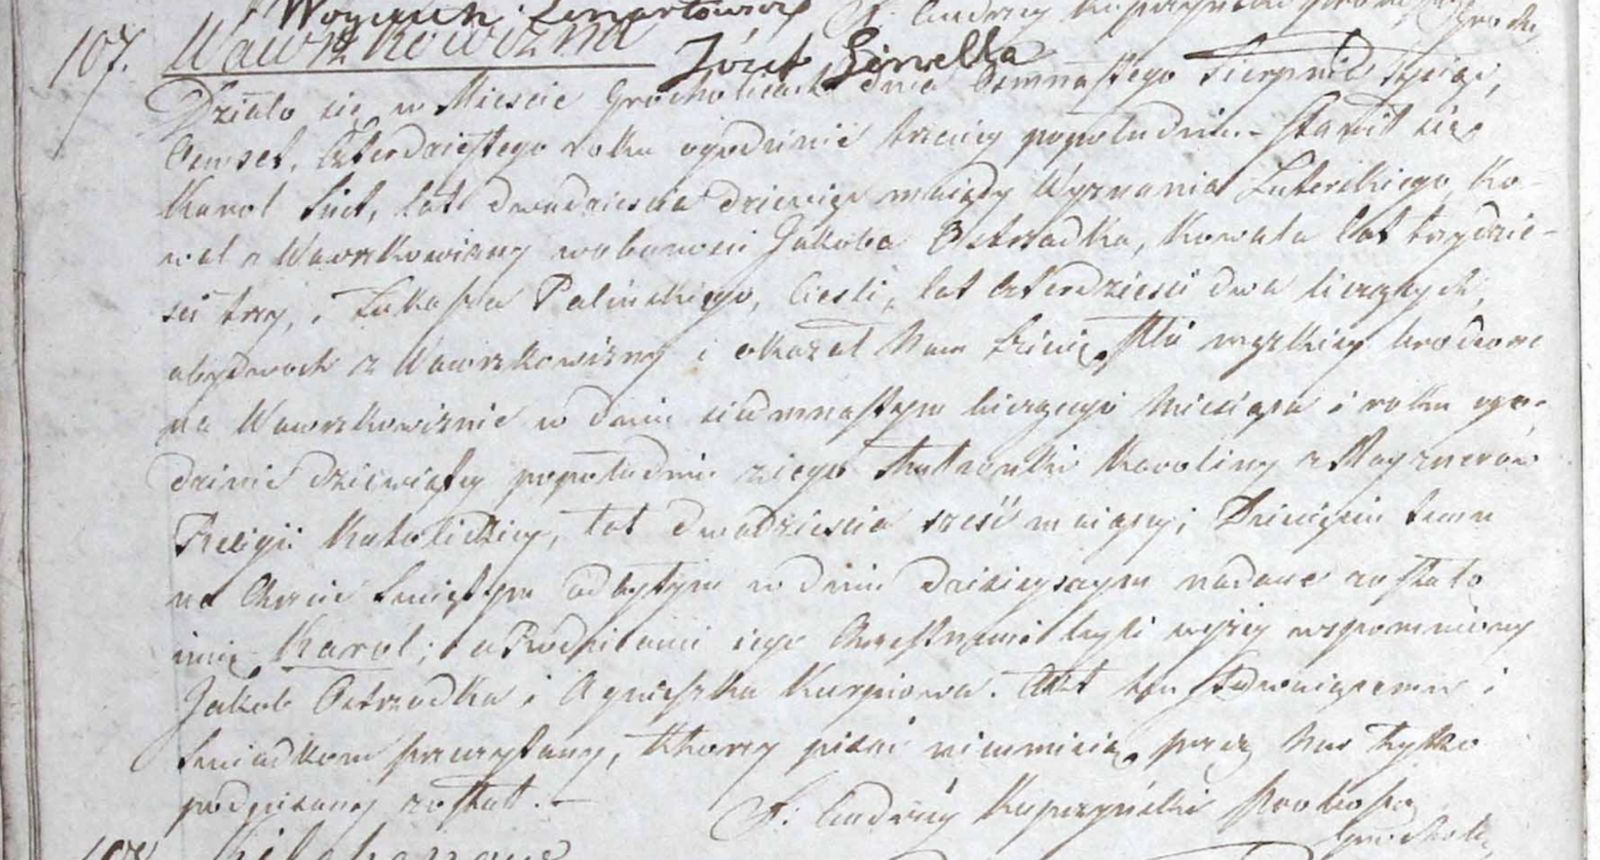 Woyciech
107. Wawrzkowizna Józef
Działo się w Mieście Grocholicach dnia Osmnastego Sierpnia Tysiąc,
Osmset, Czterdziestego roku o godzinie trzeciey popołudniu. – Stawił się
Karol lat dwadzieścia dziewięć maiący Wyznania Luterskiego, Ko-
wal z Wawrzkowizny w obecności Jakóba Ostrzadka, Kowala lat trzydzie-
ści trzy, i Łukasza Palińskiego, Cieśli, lat czterdzieści dwa liczących,
obydwoch z Wawrzkowizny i okazał Nam Dziecię Płci męzkiey urodzone
na Wawrzkowiznie w dniu siedmnastym bieżącego Miesiąca i roku o go-
dzinie dziewiątey popołudniu z iego Małżonki Karoliny z
Religii Katolickiey, lat dwadzieścia sześć maiącey; Dziecięciu temu
na Chrzcie Świętym odbytym w dniu dzisieyszym nadane zostało
imię Karol; a Rodzicami iego Chrzestnemi byli wyżey wspomniony
Jakób Ostrzadka i Agnieszka Akt ten Stawaiącemu i
Świadkom przeczytany, którzy pisać nieumieią, przez Nas tylko
podpisany został. –
X. Andrzey Proboszcz